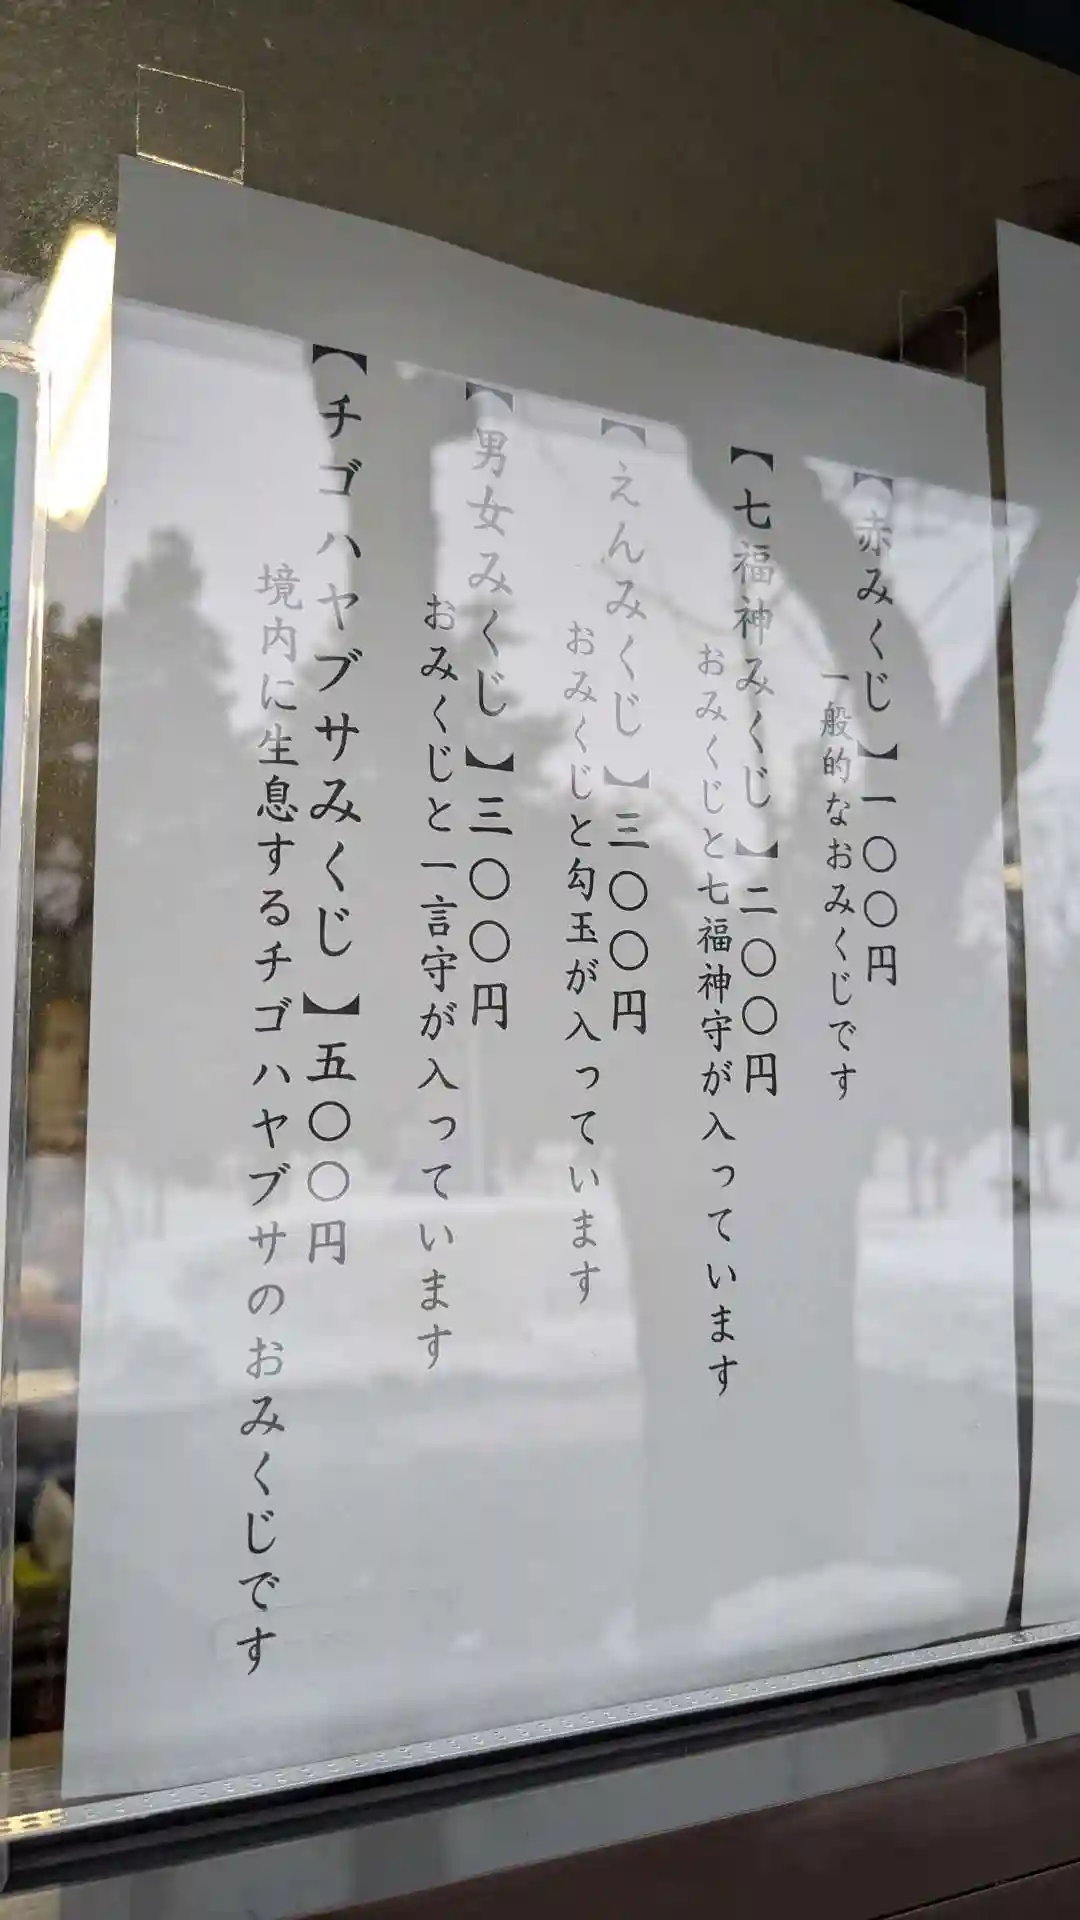 【赤みくじ】一〇〇円
一般的なおみくじです
【七福神みくじ】二〇〇円
おみくじと七福神守が入っています
【えんみくじ】三〇〇円
おみくじと勾玉が入っています
【男女みくじ】三〇〇円
おみくじと一言守が入っています
【チゴハヤブサみくじ】五〇〇円
境内に生息するチゴハヤブサのおみくじです